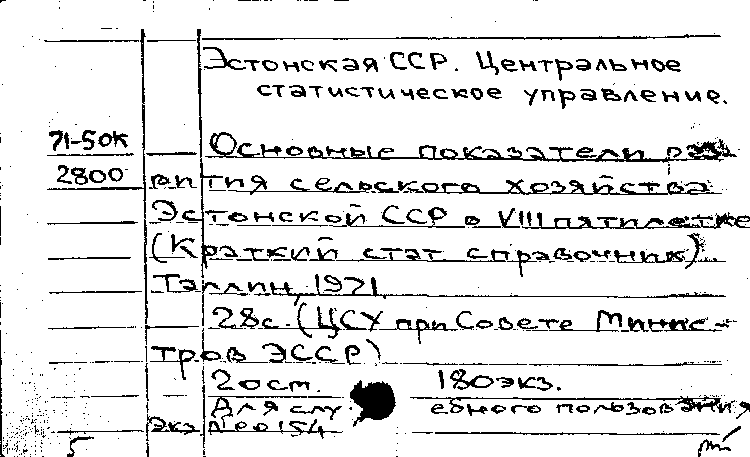 Эстонская ССР. Центральное
статистическое управление.
71-50К Основные показатели раз-
2800 вития сельского хозяйства
Эстонской ССР в VIII пятилетке
(Краткий стат справочник).
Таллин, 1971.
28с. (ЦСУ при Совете Минис-
тров ЭССР)
20ст. 180экз.
Для слу ебного пользования
Экз №00154
5